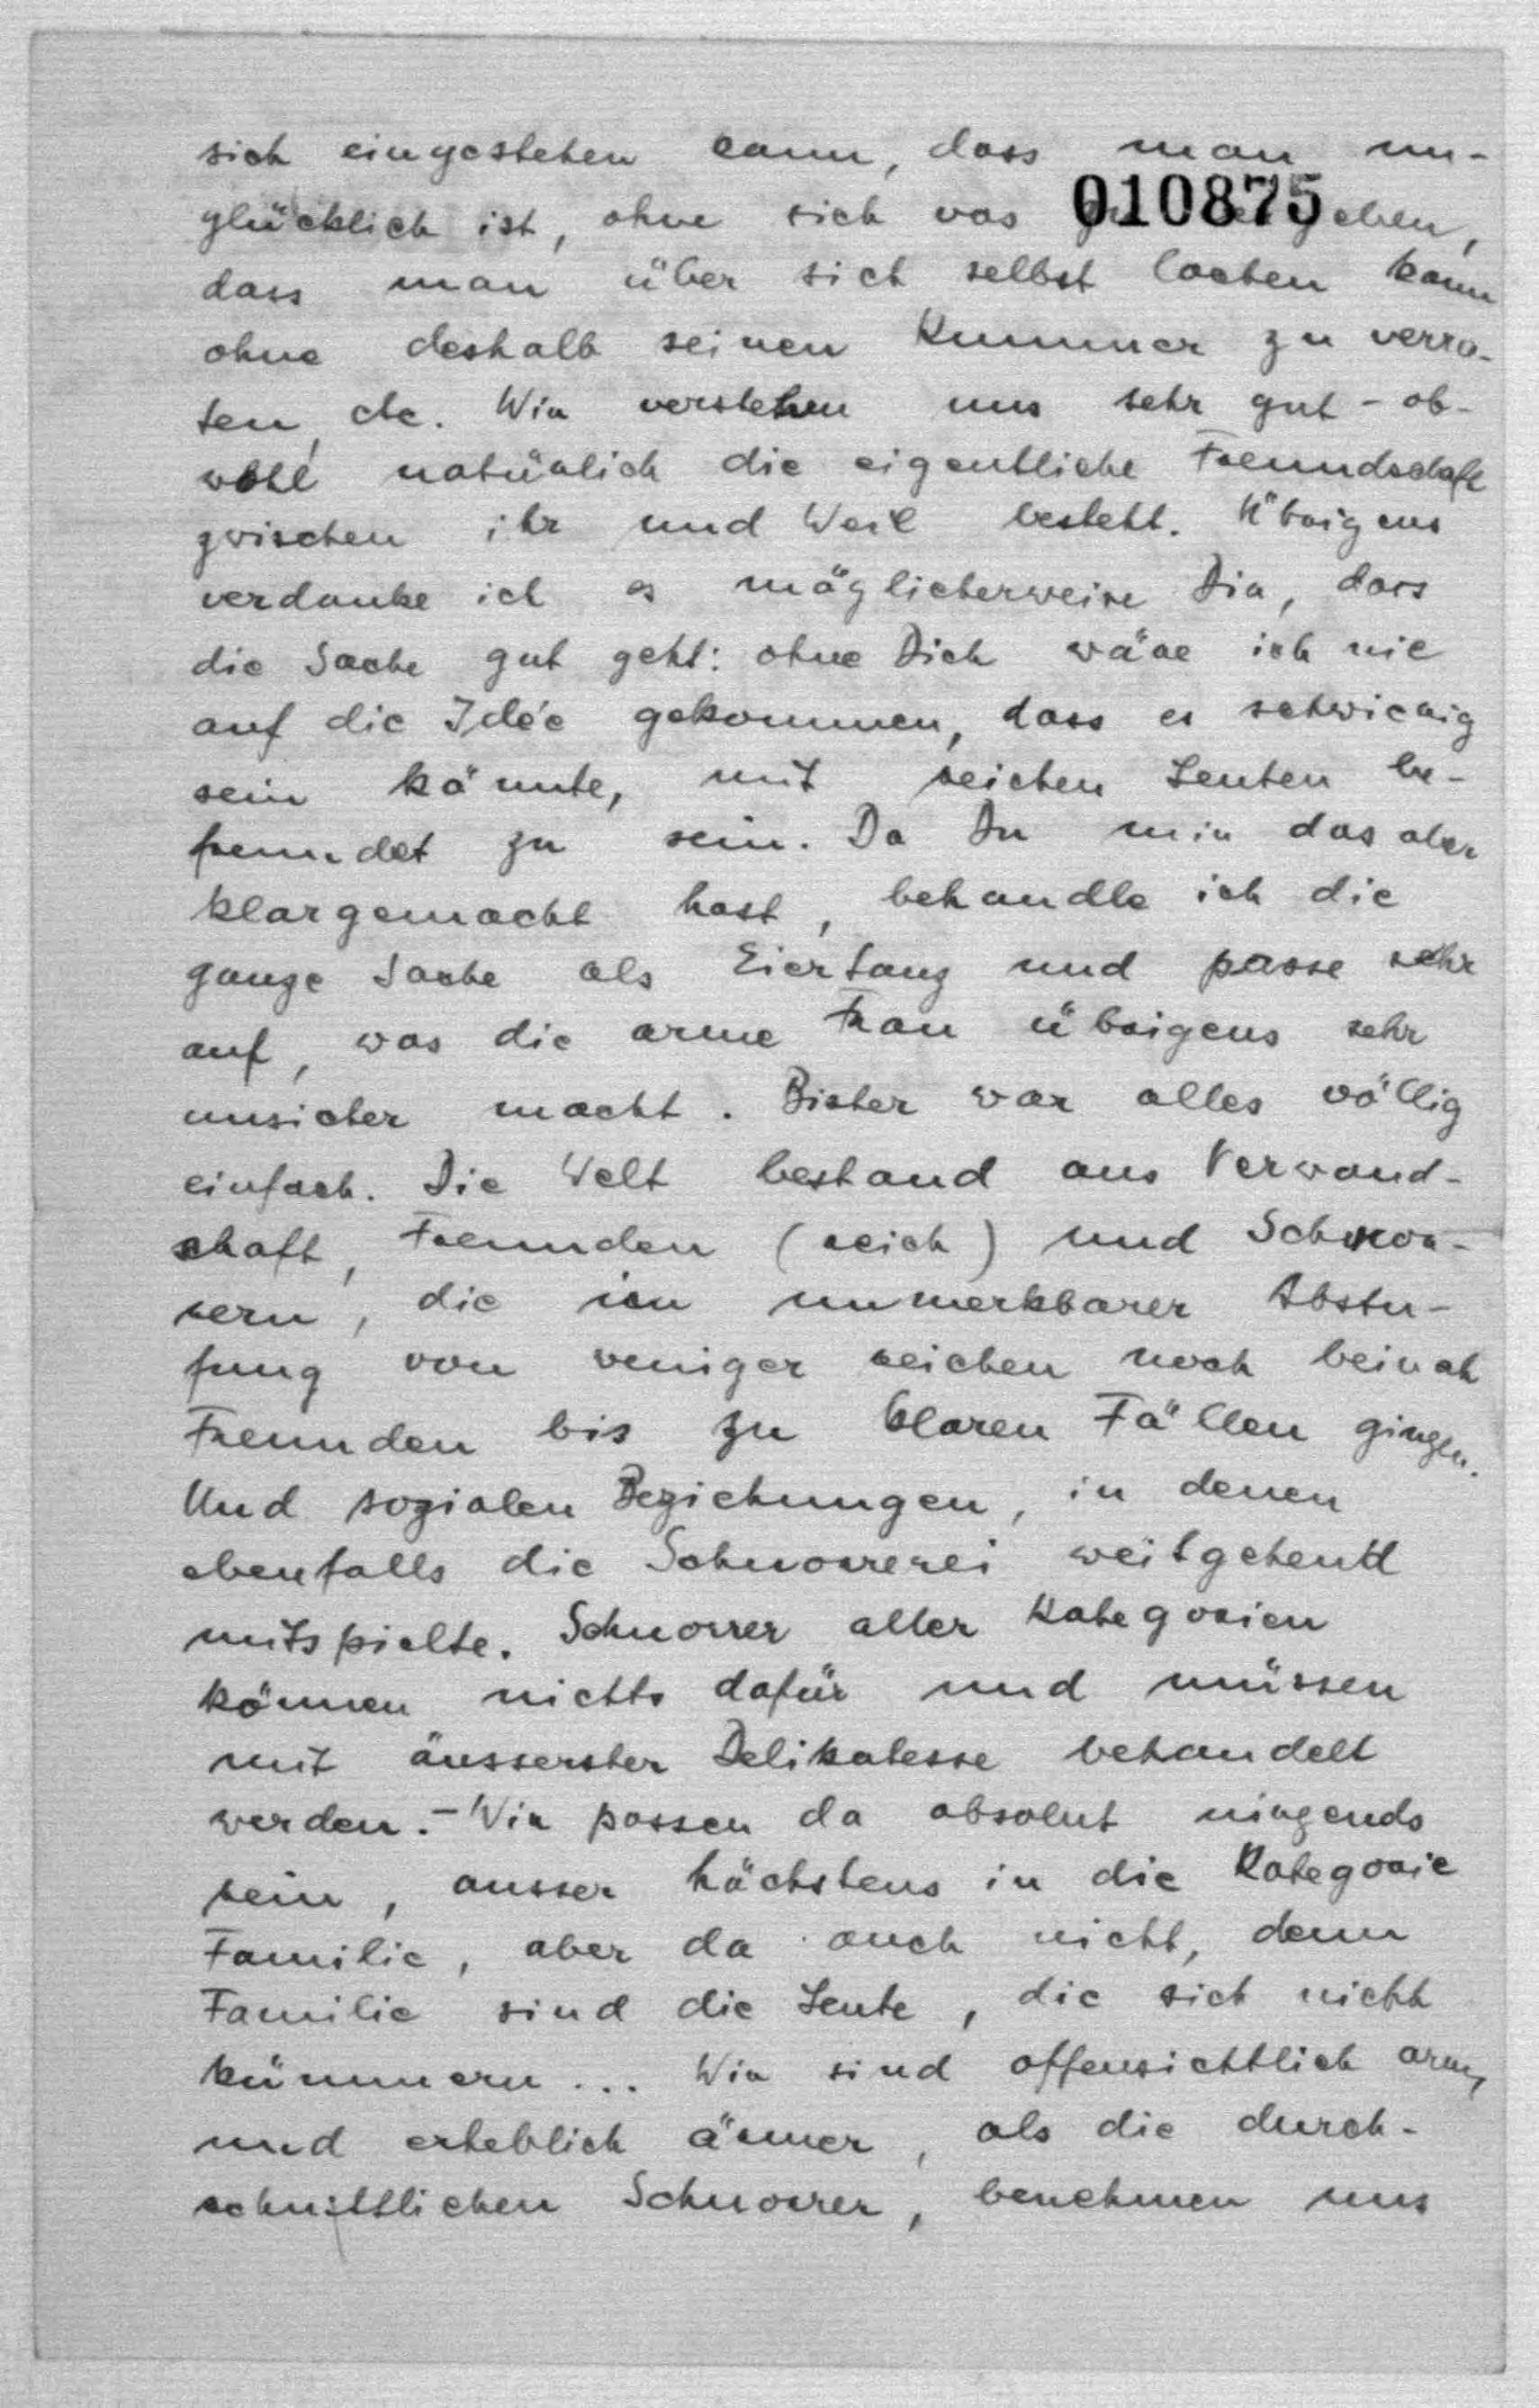 sich eingestehen kann, dass man un-
glücklich ist, ohne sich was zu vergeben,
010875
dass man über sich selbst lachen kann
ohne deshalb seinen Kummer zu verra-
ten, etc. Wir verstehen uns sehr gut - ob-
wohl natürlich die eigentliche Freundschaft
zwischen ihr und Weil besteht. Übrigens
verdanke ich es möglicherweise Dir, dass
die Sache gut geht: ohne Dich wäre ich nie
auf die Idée gekommen, dass es schwierig
sein könnte, mit reichen Leuten be-
freundet zu sein. Da Du mir das aber
klargemacht hast, behandle ich die
ganze Sache als Eiertanz und passe sehr
auf, was die arme Frau übrigens sehr
unsicher macht. Bisher war alles völlig
einfach. Die Welt bestand aus Verwand-
schaft, Freunden (reich) und Schnor-
rern, die in unmerkbarer Abstu-
fung von weniger reichen noch beinah
Freunden bis zu klaren Fällen gingen.
Und sozialen Beziehungen, in denen
ebenfalls die Schnorrerei weitgehend
mitspielte. Schnorrer aller Kategorien
können nichts dafür und müssen
mit äusserster Delikatesse behandelt
werden. - Wir passen da absolut nirgends
rein, ausser höchstens in die Kategorie
Familie, aber da auch nicht, denn
Familie sind die Leute, die sich nicht
kümmern... Wir sind offensichtlich arm,
und erheblich ärmer, als die durch-
schnittlichen Schnorrer, benehmen uns